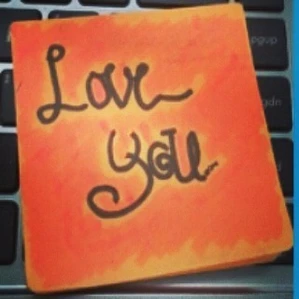 Love
you...
pgup
pgdn